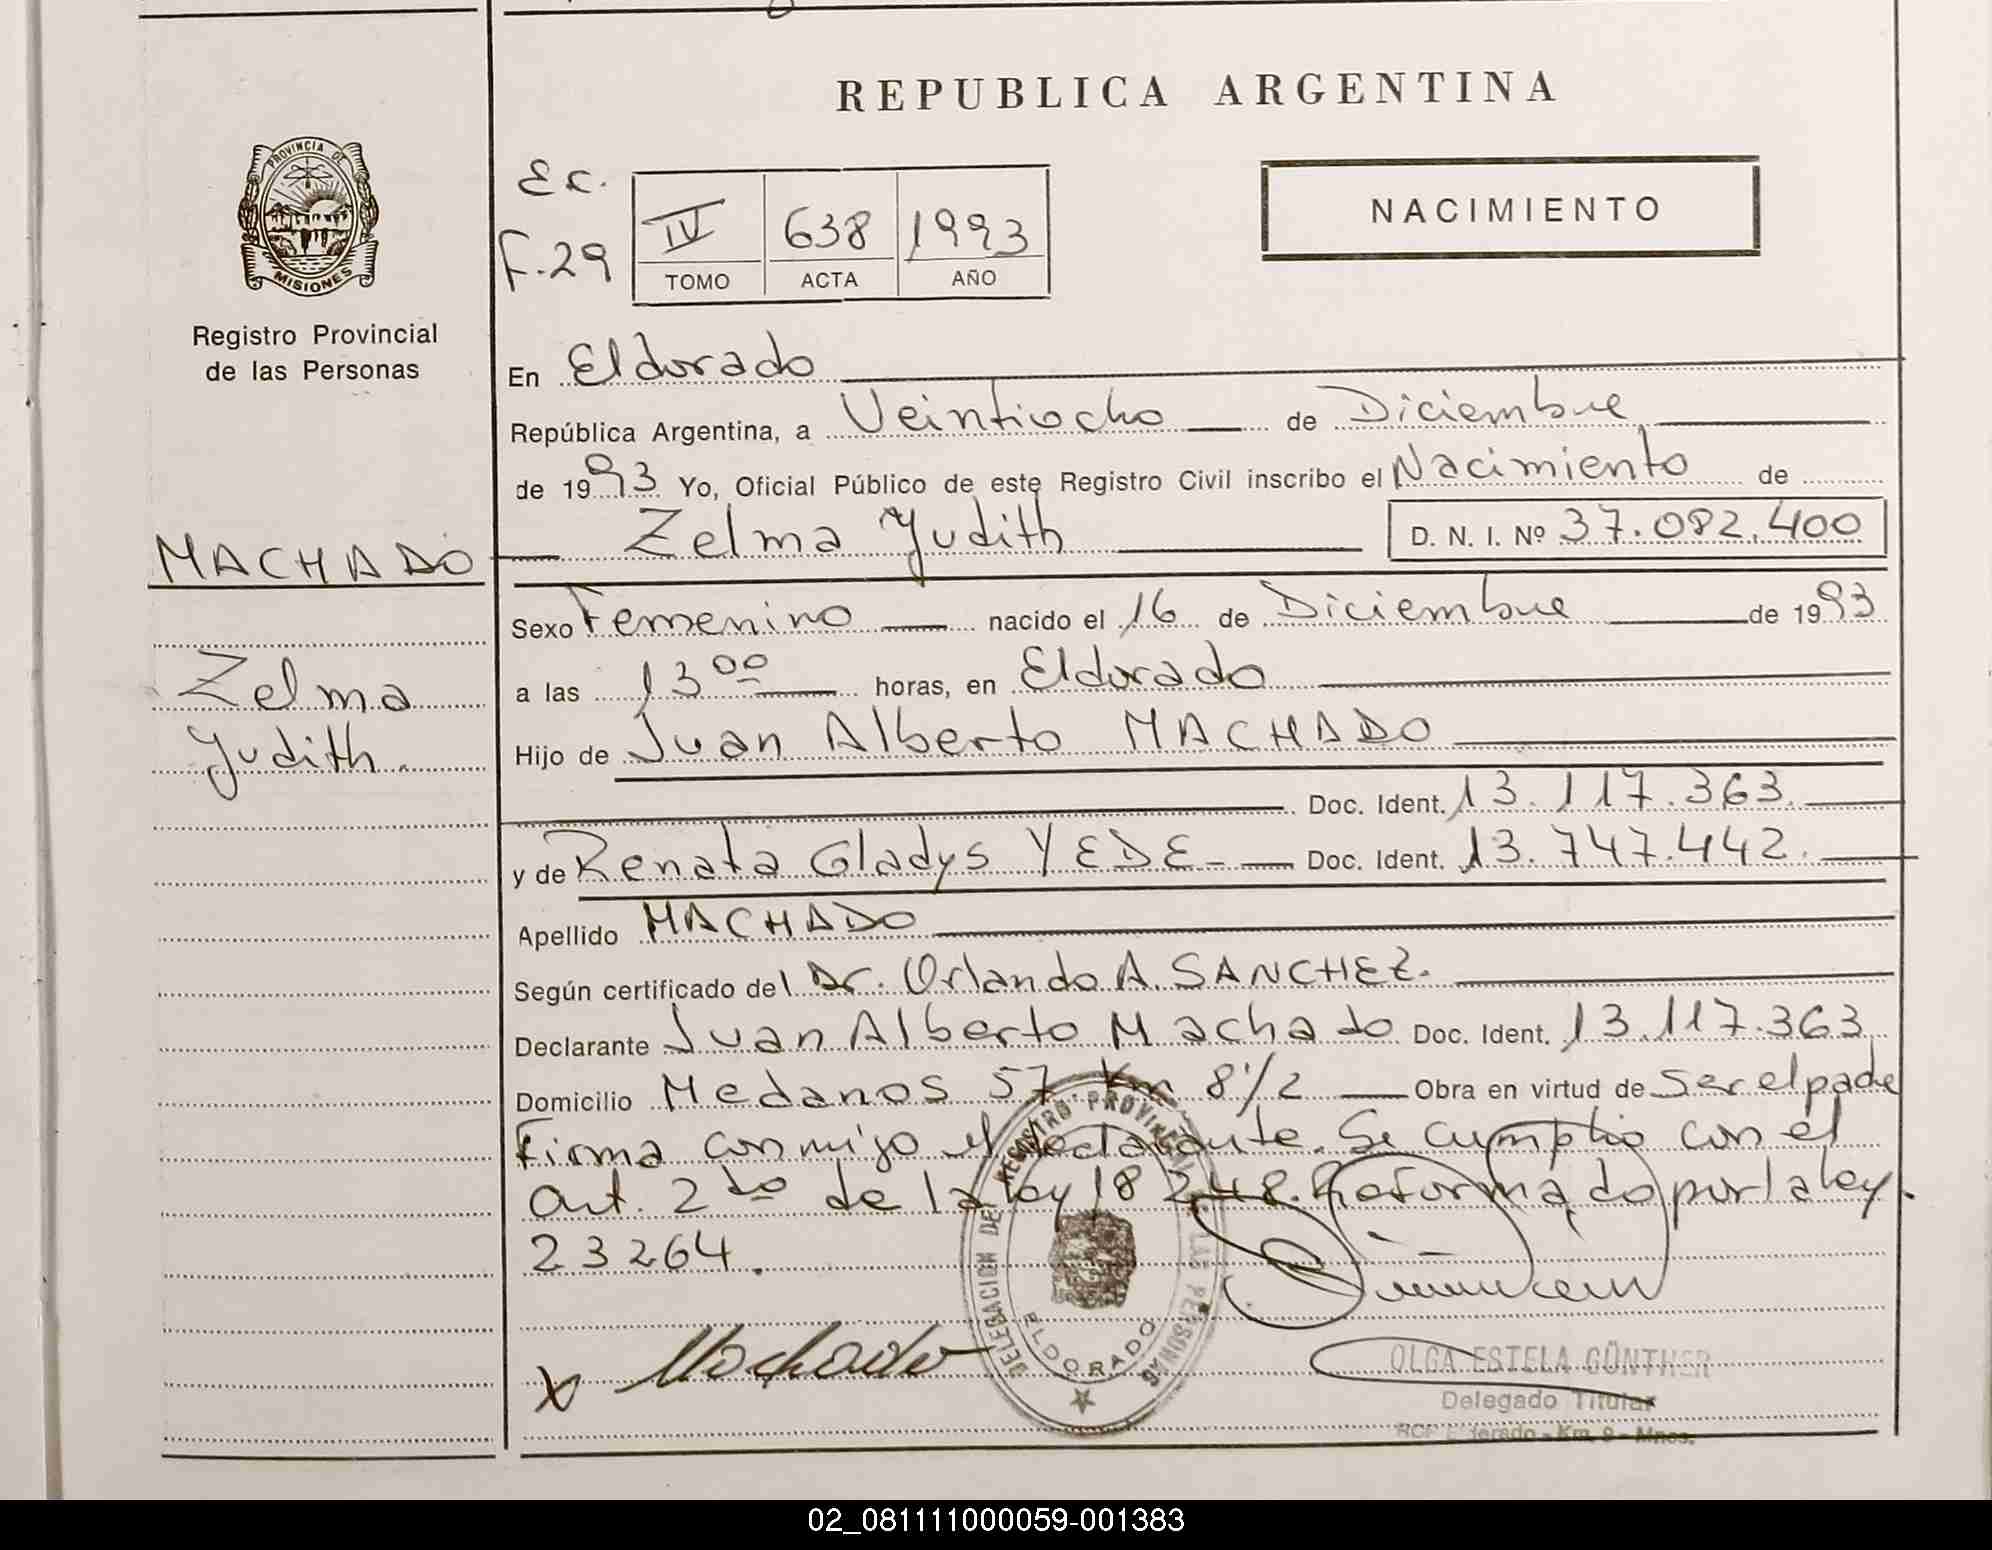 REPUBLICA ARGENTINA
PROVINCIA DE
MISIONES
Registro Provincial
de las Personas
Ec.
F.29
IV 638 1993
TOMO ACTA AÑO
NACIMIENTO
En Eldorado
República Argentina, a Veintiocho de Diciembre
de 1993 Yo, Oficial Público de este Registro Civil inscribo el Nacimiento de
MACHADO
Zelma Yudith
D. N. I. Nº 37.082.400
Sexo Femenino nacido el 16 de Diciembre de 1993
Zelma
Yudith.
a las 13 00 horas, en Eldorado
Hijo de Juan Alberto MACHADO
Doc. Ident. 13.117.363.
y de Renata Gladys YEDE - Doc. Ident. 13.747.442.
Apellido MACHADO
Según certificado del Dr. Orlando A. SANCHEZ.
Declarante Juan Alberto Machado Doc. Ident. 13.117.363
Domicilio Medanos 57 Km 8 1/2 Obra en virtud de ser el padre
Firma conmigo el declarante. Se cumplio con el
Art. 2do de la ley 18248. Reformado por la ley.
23264.
DELEGACION DEL REGISTRO PROVINCIAL DE LAS PERSONAS
ELDORADO
X Machado
OLGA ESTELA GÜNTHER
Delegado Titular
Km. 9 - Mnes.
02_081111000059-001383